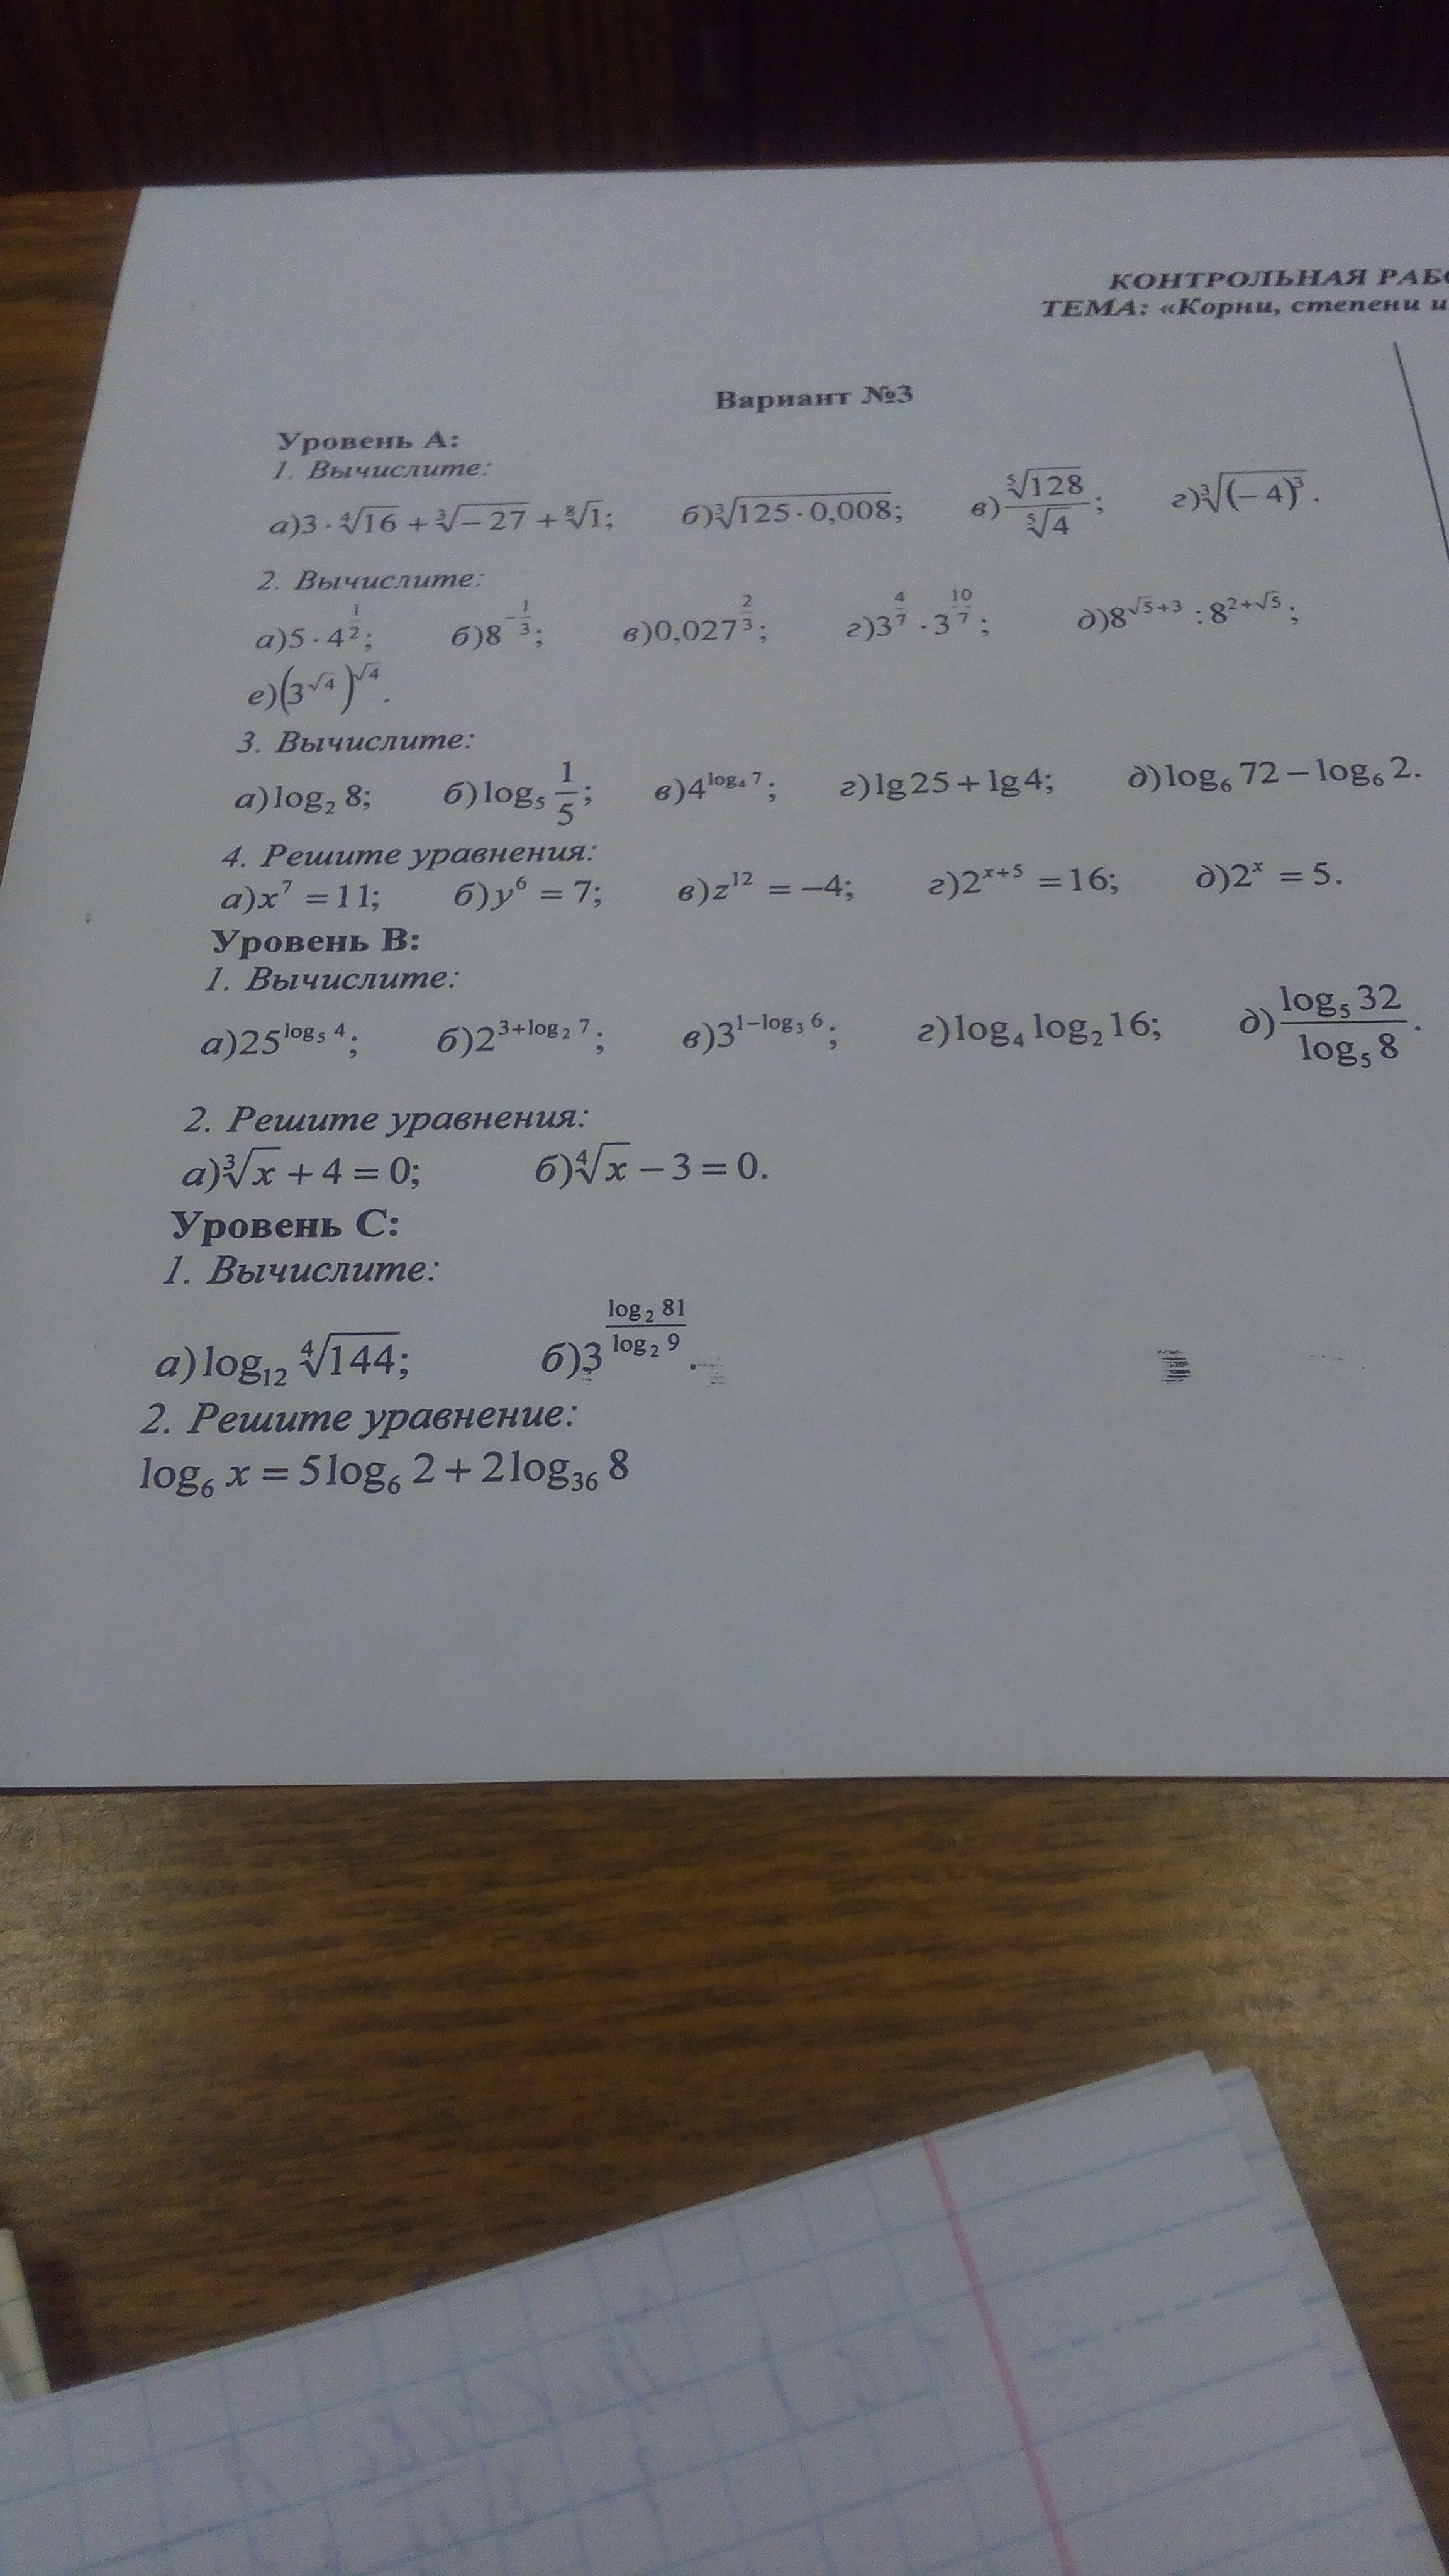 КОНТРОЛЬНАЯ
ТЕМА: «Корни, степени и
Вариант №3
Уровень А:
1. Вычислите:
а)3·⁴√16 + ³√−27 + ⁸√1; б)³√(125·0,008); в)⁵√128 / ⁵√4; г)³√((−4)³).
2. Вычислите:
а)5·4^(1/2); б)8^(−1/3); в)0,027^(2/3); г)3^(4/7)·3^(10/7); д)8^(√5+3) : 8^(2+√5);
е)(3^√4)^√4.
3. Вычислите:
а)log₂ 8; б)log₅ 1/5; в)4^(log₄ 7); г)lg25 + lg4; д)log₆ 72 − log₆ 2.
4. Решите уравнения:
а)x⁷ = 11; б)y⁶ = 7; в)z¹² = −4; г)2^(x+5) = 16; д)2^x = 5.
Уровень В:
1. Вычислите:
а)25^(log₅ 4); б)2^(3+log₂ 7); в)3^(1−log₃ 6); г)log₄ log₂ 16; д)log₅ 32 / log₅ 8.
2. Решите уравнения:
а)³√x + 4 = 0; б)⁴√x − 3 = 0.
Уровень С:
1. Вычислите:
а)log₁₂ ⁴√144; б)3^(log₂ 81 / log₂ 9).
2. Решите уравнение:
log₆ x = 5log₆ 2 + 2log₃₆ 8